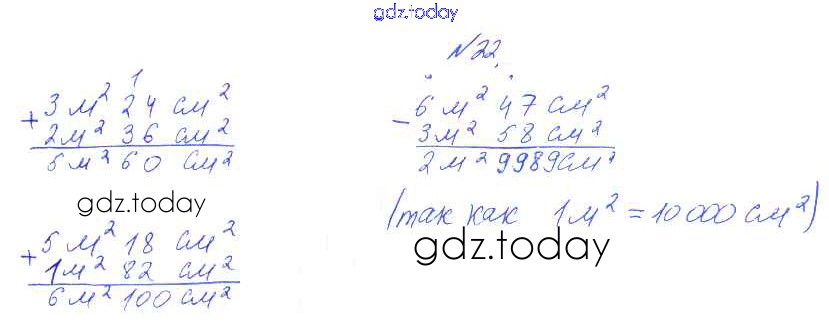 gdz.today
№22.
1
+ 3 м² 24 см²
2 м² 36 см²
5 м² 60 см²
gdz.today
+ 5 м² 18 см²
1 м² 82 см²
6 м² 100 см²
- 6 м² 47 см²
3 м² 58 см²
2 м² 9989 см²
(так как 1 м² = 10 000 см²)
gdz.today